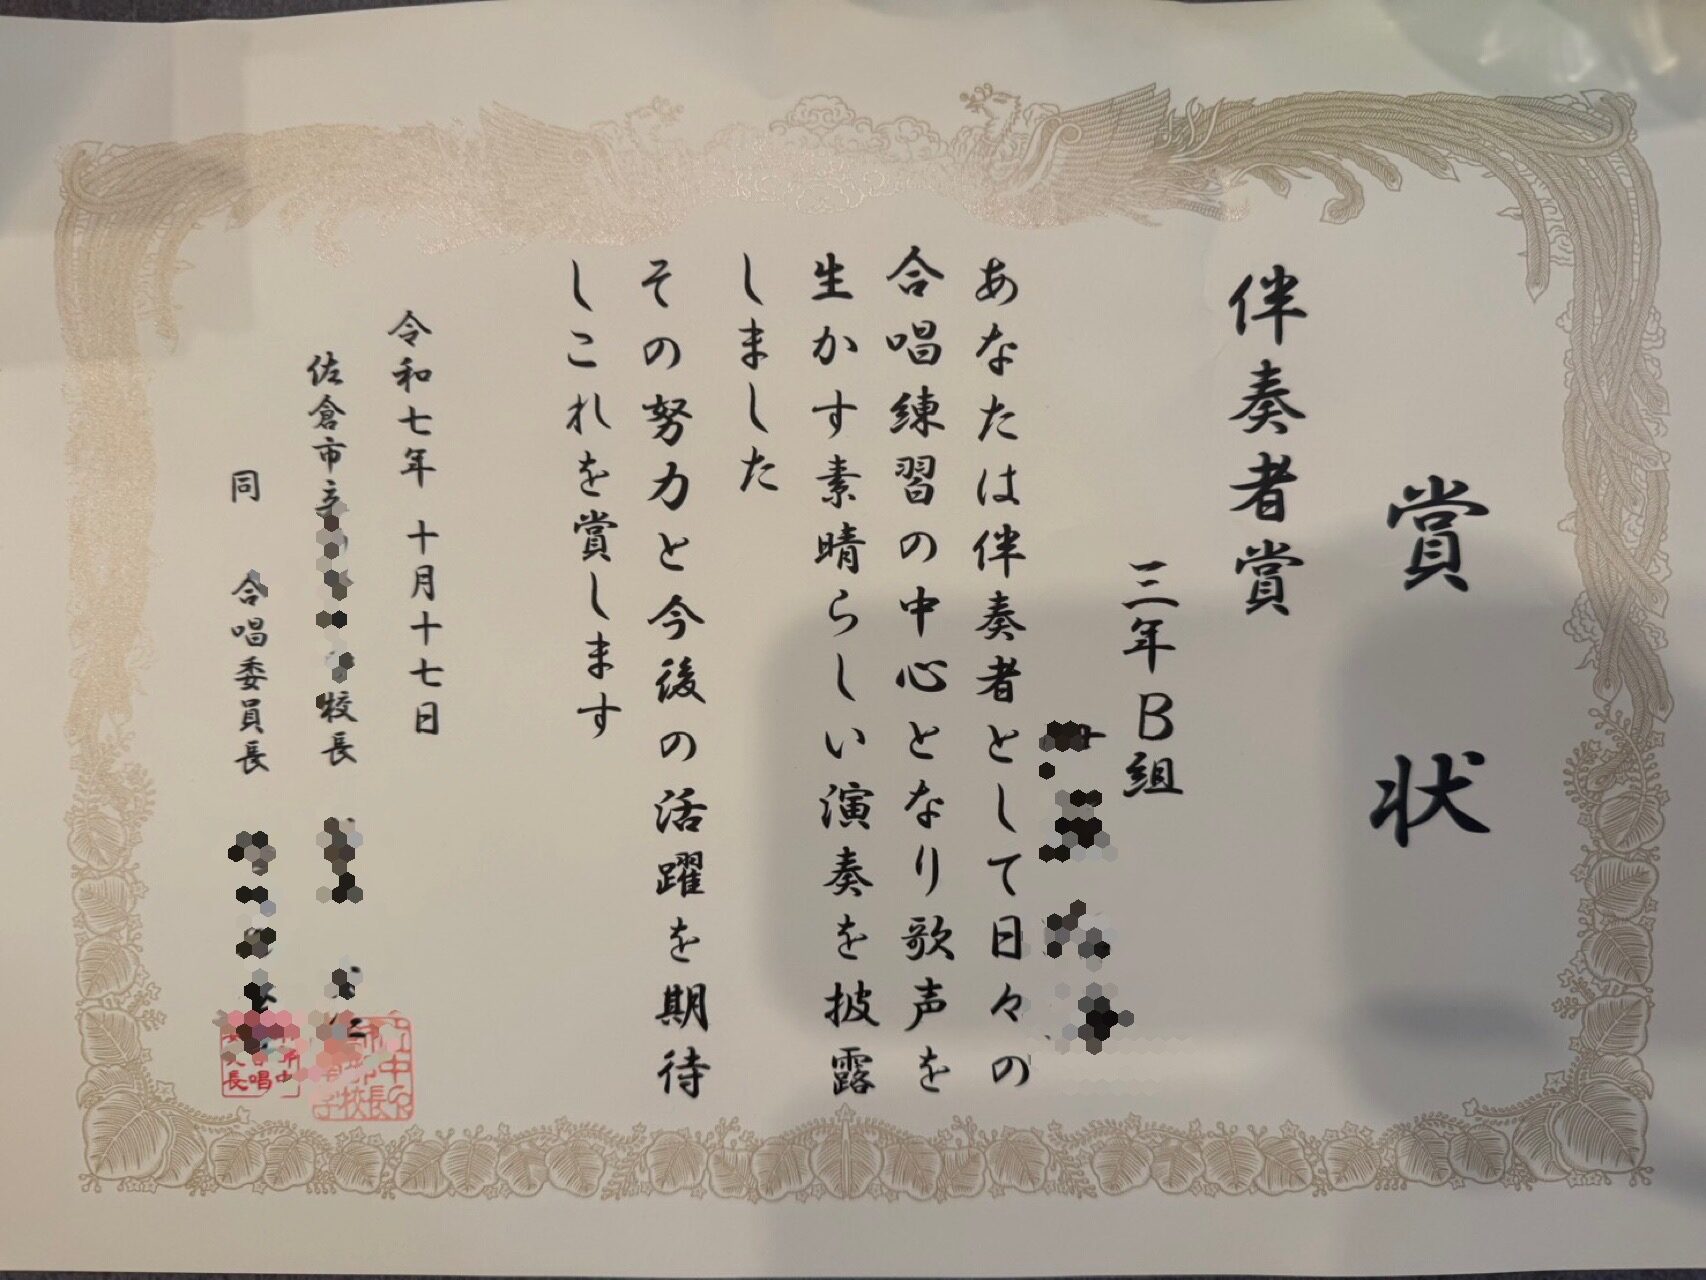 賞状
伴奏者賞
三年B組
あなたは伴奏者として日々の
合唱練習の中心となり歌声を
生かす素晴らしい演奏を披露
しました
その努力と今後の活躍を期待
しこれを賞します
令和七年 十月十七日
佐倉市 校長
同 合唱委員長